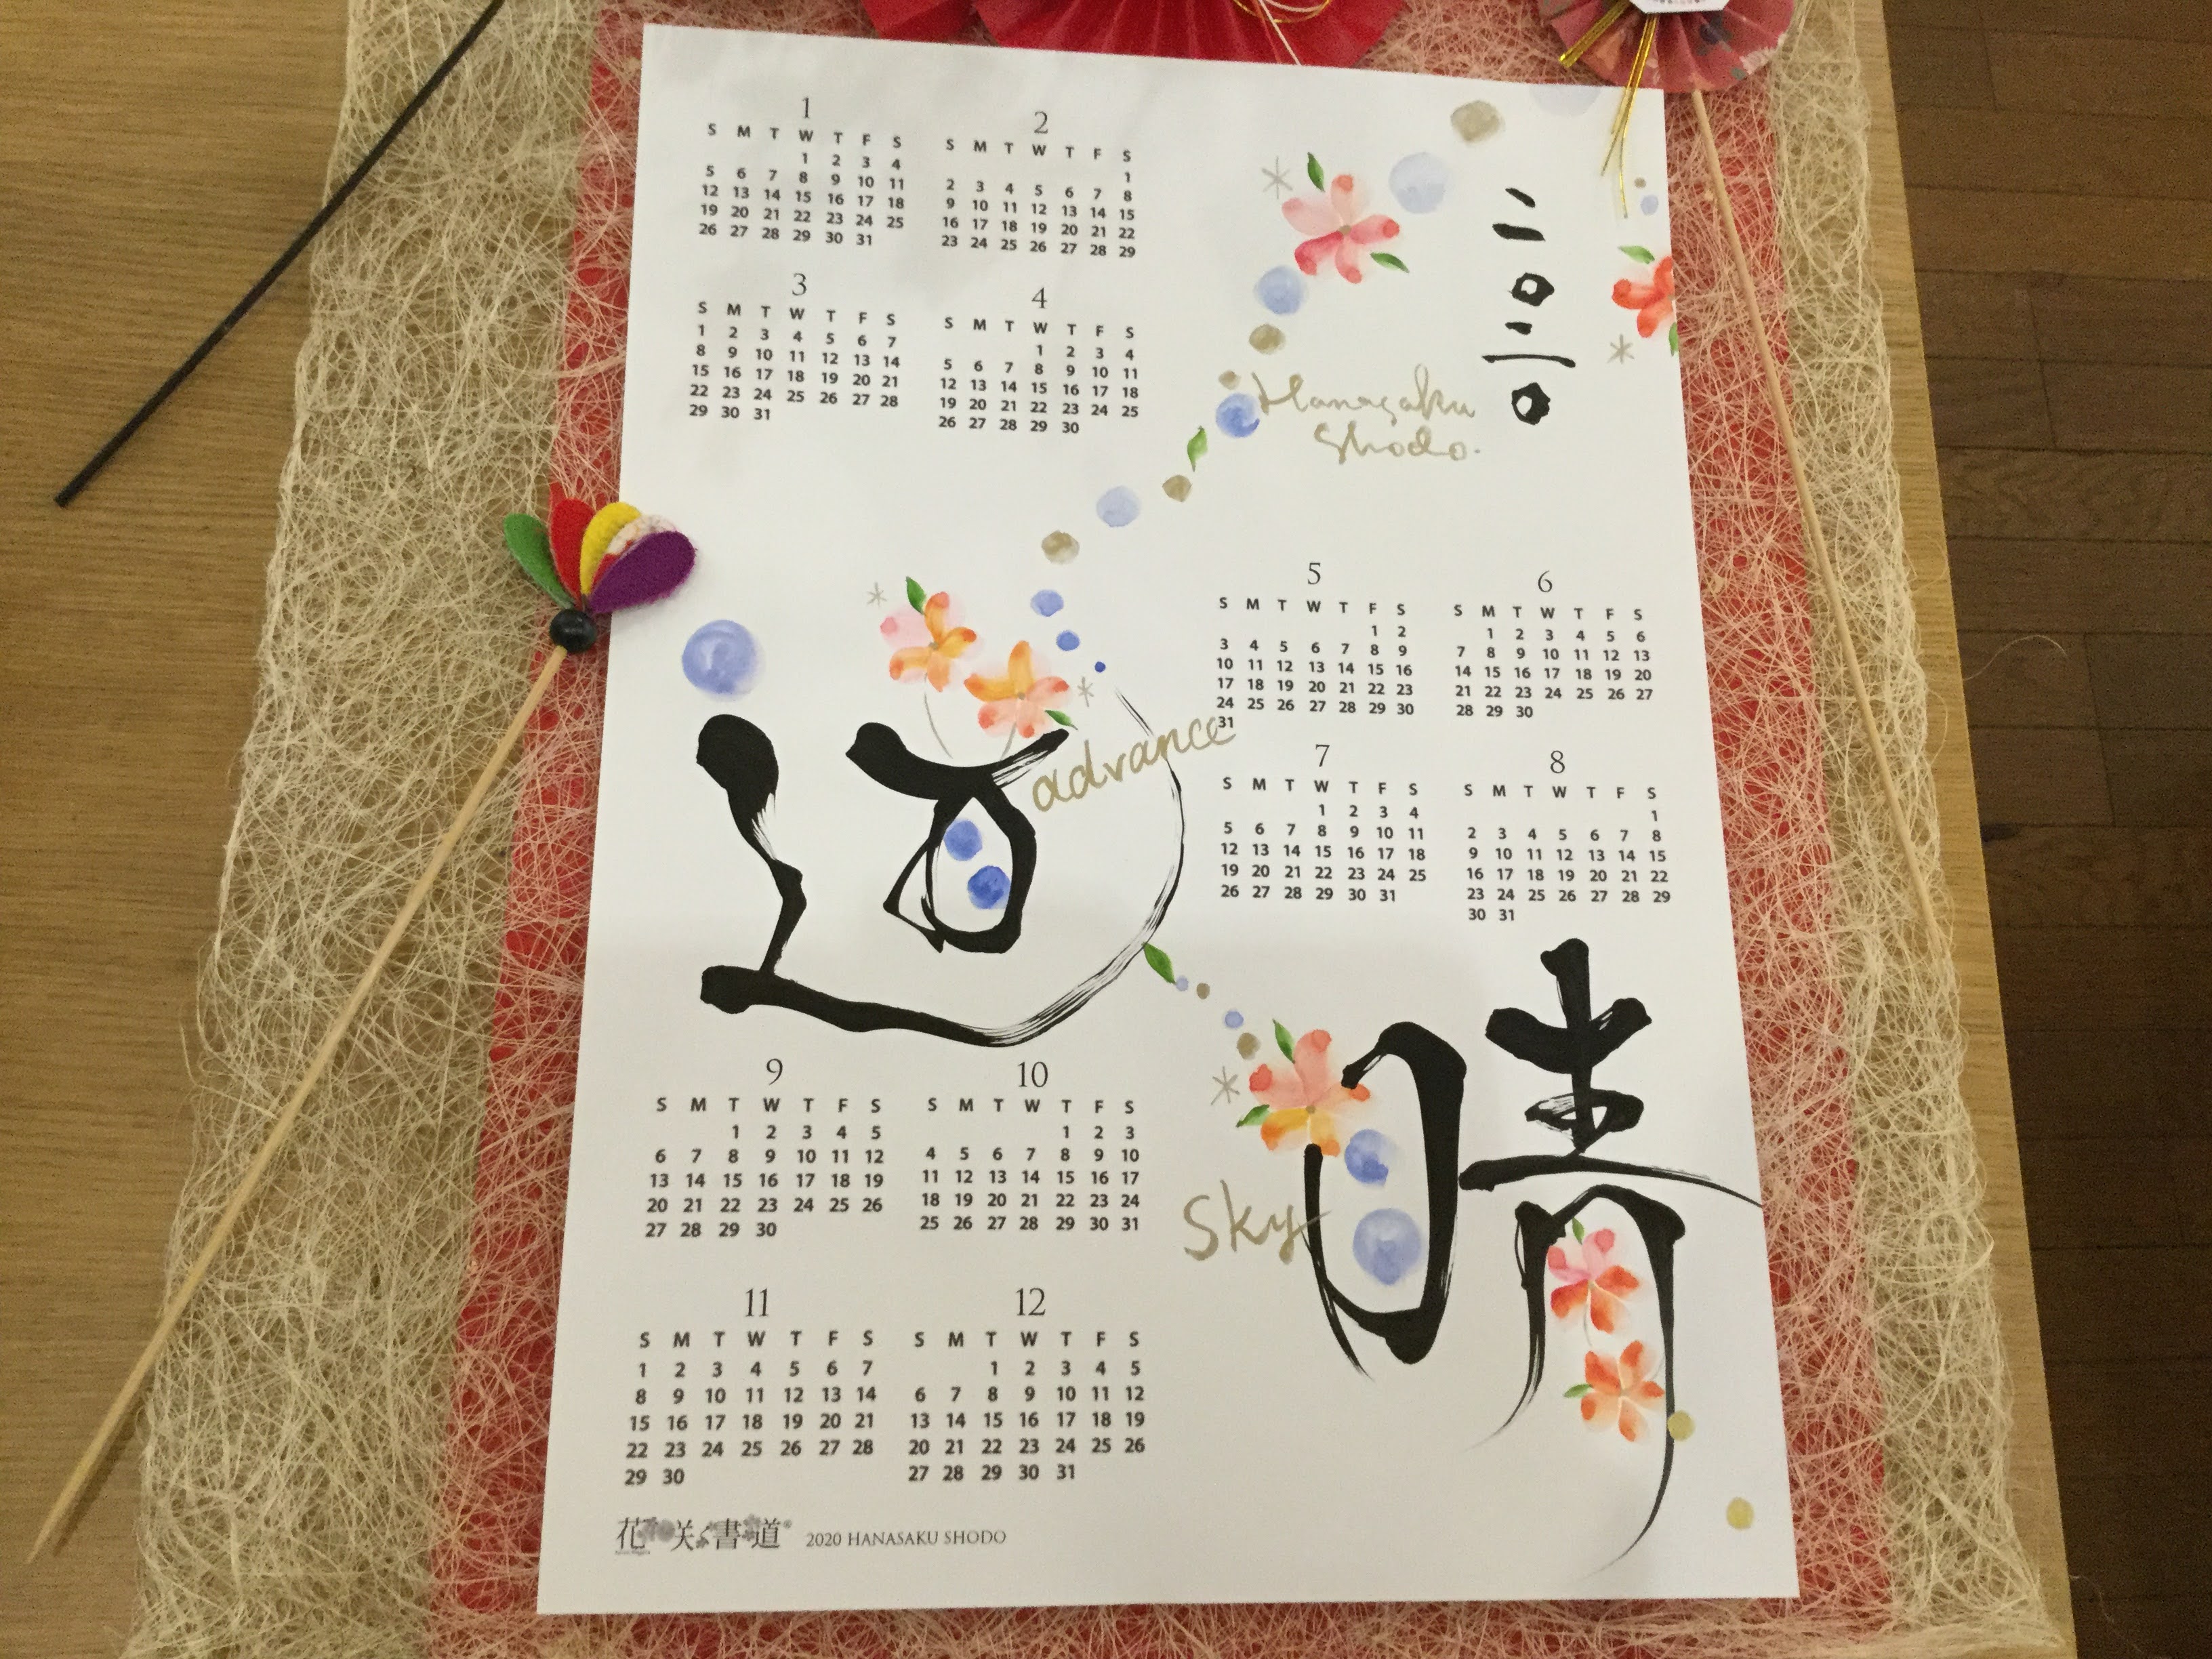 1
S M T W T F S
1 2 3 4
5 6 7 8 9 10 11
12 13 14 15 16 17 18
19 20 21 22 23 24 25
26 27 28 29 30 31
2
S M T W T F S
1
2 3 4 5 6 7 8
9 10 11 12 13 14 15
16 17 18 19 20 21 22
23 24 25 26 27 28 29
3
S M T W T F S
1 2 3 4 5 6 7
8 9 10 11 12 13 14
15 16 17 18 19 20 21
22 23 24 25 26 27 28
29 30 31
4
S M T W T F S
1 2 3 4
5 6 7 8 9 10 11
12 13 14 15 16 17 18
19 20 21 22 23 24 25
26 27 28 29 30
二〇二〇
Hanasaku
Shodo.
5
S M T W T F S
1 2
3 4 5 6 7 8 9
10 11 12 13 14 15 16
17 18 19 20 21 22 23
24 25 26 27 28 29 30
31
6
S M T W T F S
1 2 3 4 5 6
7 8 9 10 11 12 13
14 15 16 17 18 19 20
21 22 23 24 25 26 27
28 29 30
道
advance
7
S M T W T F S
1 2 3 4
5 6 7 8 9 10 11
12 13 14 15 16 17 18
19 20 21 22 23 24 25
26 27 28 29 30 31
8
S M T W T F S
1
2 3 4 5 6 7 8
9 10 11 12 13 14 15
16 17 18 19 20 21 22
23 24 25 26 27 28 29
30 31
9
S M T W T F S
1 2 3 4 5
6 7 8 9 10 11 12
13 14 15 16 17 18 19
20 21 22 23 24 25 26
27 28 29 30
10
S M T W T F S
1 2 3
4 5 6 7 8 9 10
11 12 13 14 15 16 17
18 19 20 21 22 23 24
25 26 27 28 29 30 31
晴
Sky
11
S M T W T F S
1 2 3 4 5 6 7
8 9 10 11 12 13 14
15 16 17 18 19 20 21
22 23 24 25 26 27 28
29 30
12
S M T W T F S
1 2 3 4 5
6 7 8 9 10 11 12
13 14 15 16 17 18 19
20 21 22 23 24 25 26
27 28 29 30 31
花咲く書道® 2020 HANASAKU SHODO